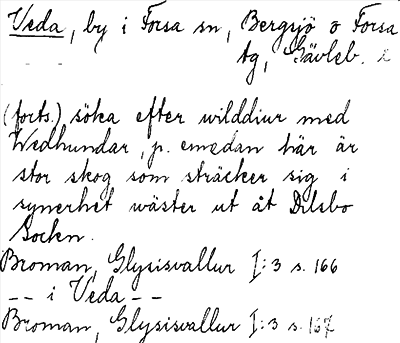 Veda, by i Forsa sn, Bergsjö o Forsa
tg, Gävleb. l
(forts.) söka efter wilddiur med
Wedhundar, p. emedan här är
stor skog som sträcker sig i
synerhet wäster ut åt Dilsbo
Sockn.
Broman, Glysisvallur I:3 s. 166
-- i Veda --
Broman, Glysisvallur I:3 s. 167